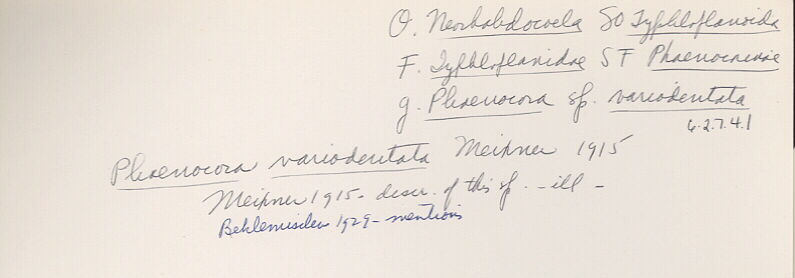 O. Neorhabdocoela SO Typhloplanoida
F. Typhloplanidae SF Phaenocorinae
g. Phaenocora sp. variodentata
6.2.7.4.1
Phaenocora variodentata Meixner 1915
Meixner 1915 - descr. of this sp. - ill -
Beklemischev 1929 - mentions